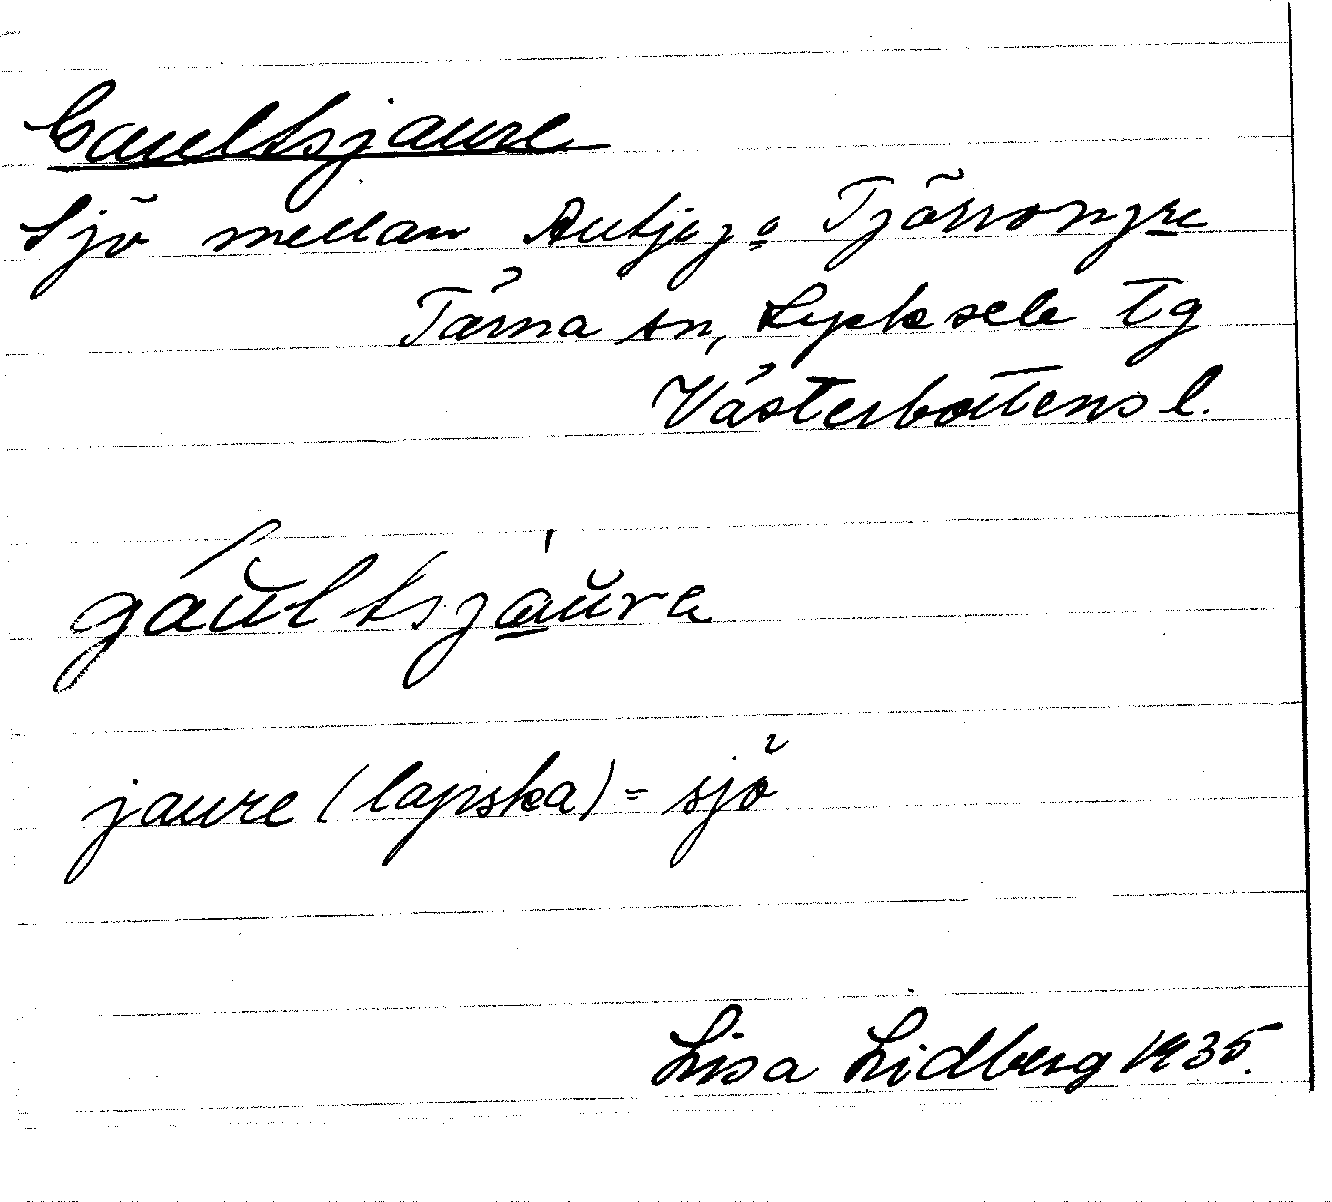 Gaultsjaure
Sjö mellan Autjej o Tjårrongre
Tärna sn, Lycksele tg
Västerbottens l.
gáŭltsjaŭra
jaure (lapska) = sjö
Lisa Lidberg 1935.